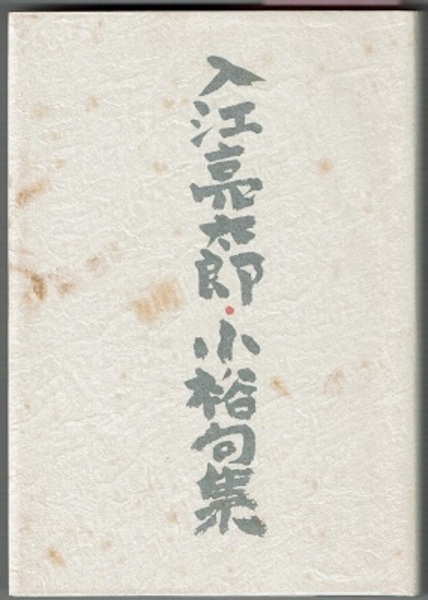 入江亮太郎・小裕句集